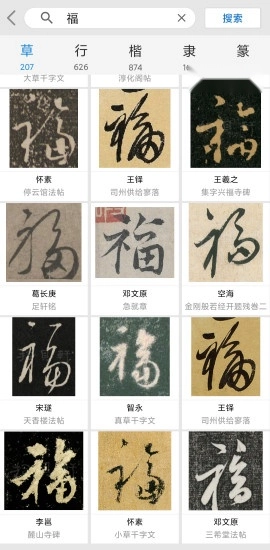 福 搜索
草 行 楷 隶 篆
207 626 874
大草千字文 淳化阁帖
福 福 福
怀素 王铎 王羲之
停云馆法帖 司州供给寥落 集字兴福寺碑
福 福 福
葛长庚 邓文原 空海
足轩铭 急就章 金刚般若经开题残卷二
福 福 福
宋璲 智永 王铎
天香楼法帖 真草千字文 司州供给寥落
福 福 福
李邕 怀素 邓文原
麓山寺碑 小草千字文 三希堂法帖